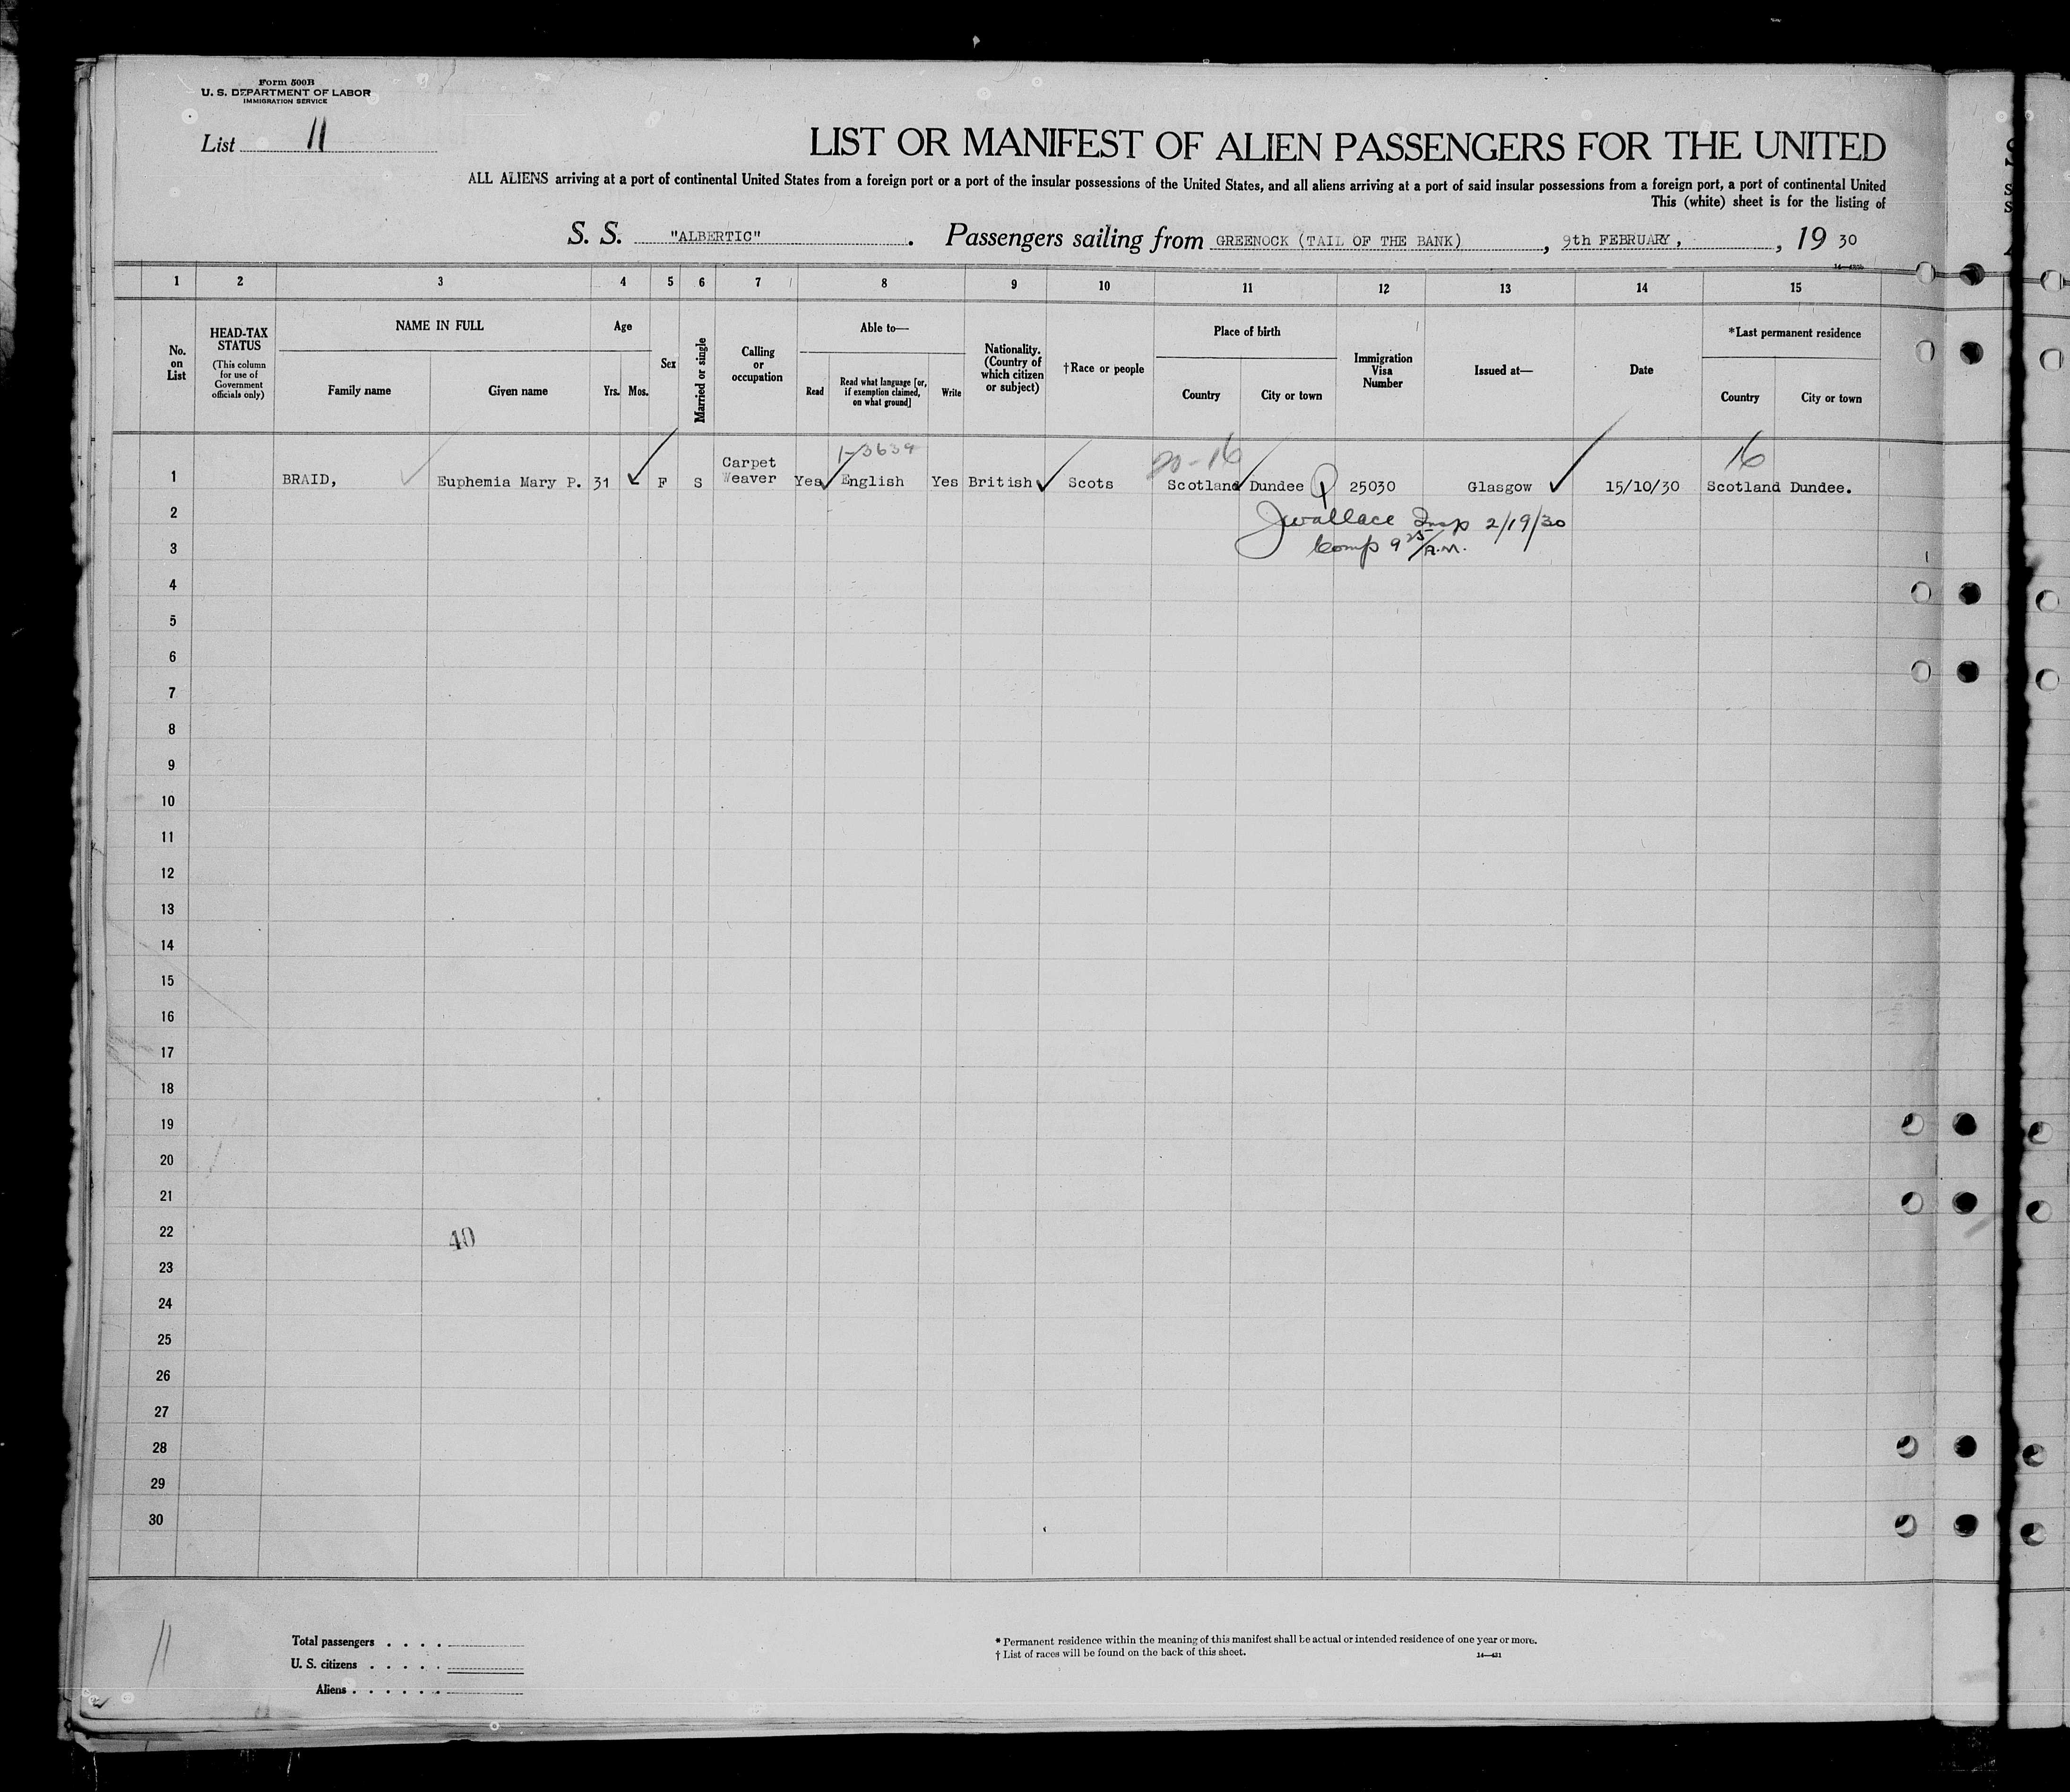 Form 500B
U. S. DEPARTMENT OF LABOR
IMMIGRATION SERVICE
List 11
LIST OR MANIFEST OF ALIEN PASSENGERS FOR THE UNITED
ALL ALIENS arriving at a port of continental United States from a foreign port or a port of the insular possessions of the United States, and all aliens arriving at a port of said insular possessions from a foreign port, a port of continental United
This (white) sheet is for the listing of
S. S. "ALBERTIC". Passengers sailing from GREENOCK (TAIL OF THE BANK), 9th FEBRUARY, , 19 30
1 2 3 4 5 6 7 8 9 10 11 12 13 14 15
No. on List
HEAD-TAX STATUS
(This column for use of Government officials only)
NAME IN FULL
Family name Given name
Age
Yrs. Mos.
Sex
Married or single
Calling or occupation
Able to—
Read
Read what language [or, if exemption claimed, on what ground]
Write
Nationality. (Country of which citizen or subject)
†Race or people
Place of birth
Country City or town
Immigration Visa Number
Issued at—
Date
*Last permanent residence
Country City or town
1-3639 20-16 16
1 BRAID, Euphemia Mary P. 31 F S Carpet Weaver Yes English Yes British Scots Scotland Dundee Q 25030 Glasgow 15/10/30 Scotland Dundee.
2 JWallace Insp 2/19/30
3 Comp 9 25/A.M.
4
5
6
7
8
9
10
11
12
13
14
15
16
17
18
19
20
21
22 40
23
24
25
26
27
28
29
30
11
Total passengers . . . .
U. S. citizens . . . . .
Aliens . . . . . .
* Permanent residence within the meaning of this manifest shall be actual or intended residence of one year or more.
† List of races will be found on the back of this sheet.
14—421